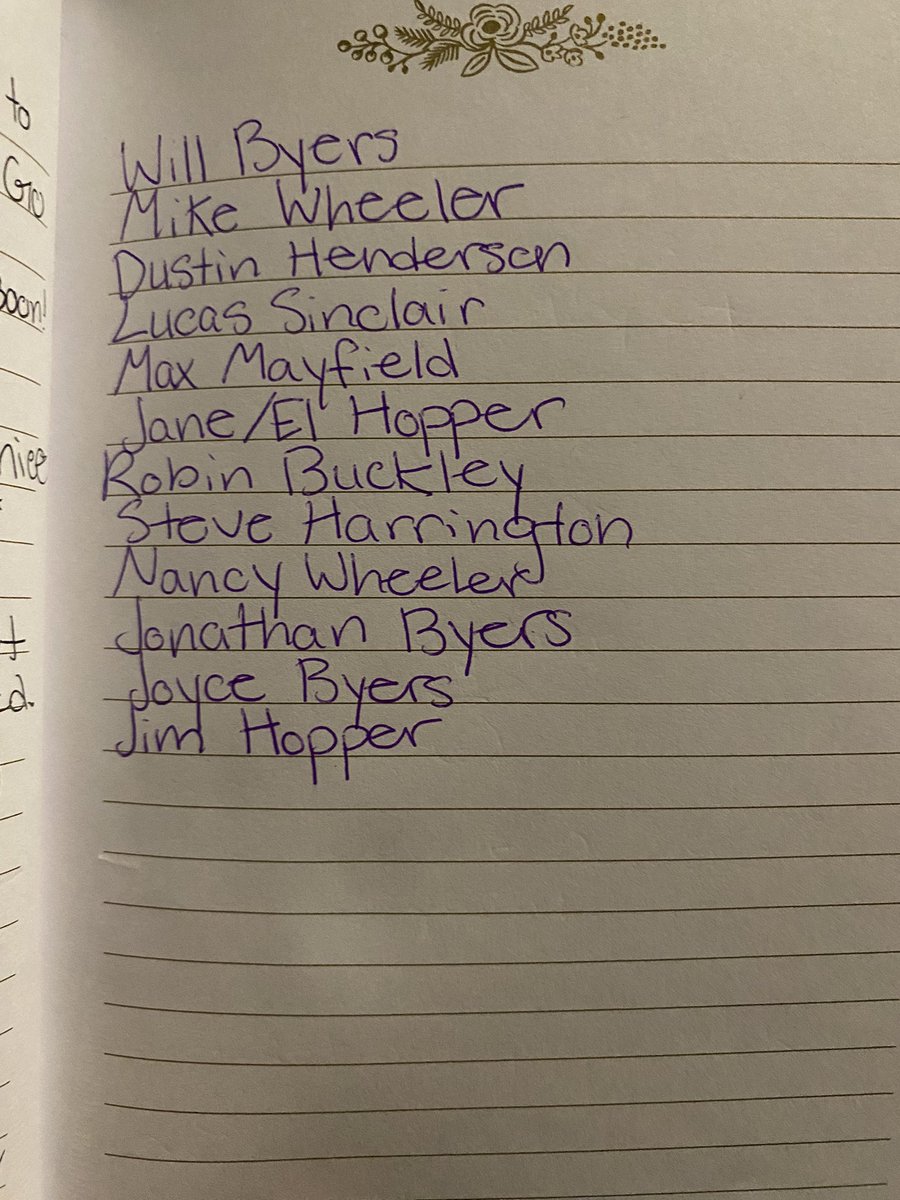 to
Go
soon!
nice
d.
Will Byers
Mike Wheeler
Dustin Henderson
Lucas Sinclair
Max Mayfield
Jane/El Hopper
Robin Buckley
Steve Harrington
Nancy Wheeler
Jonathan Byers
Joyce Byers
Jim Hopper